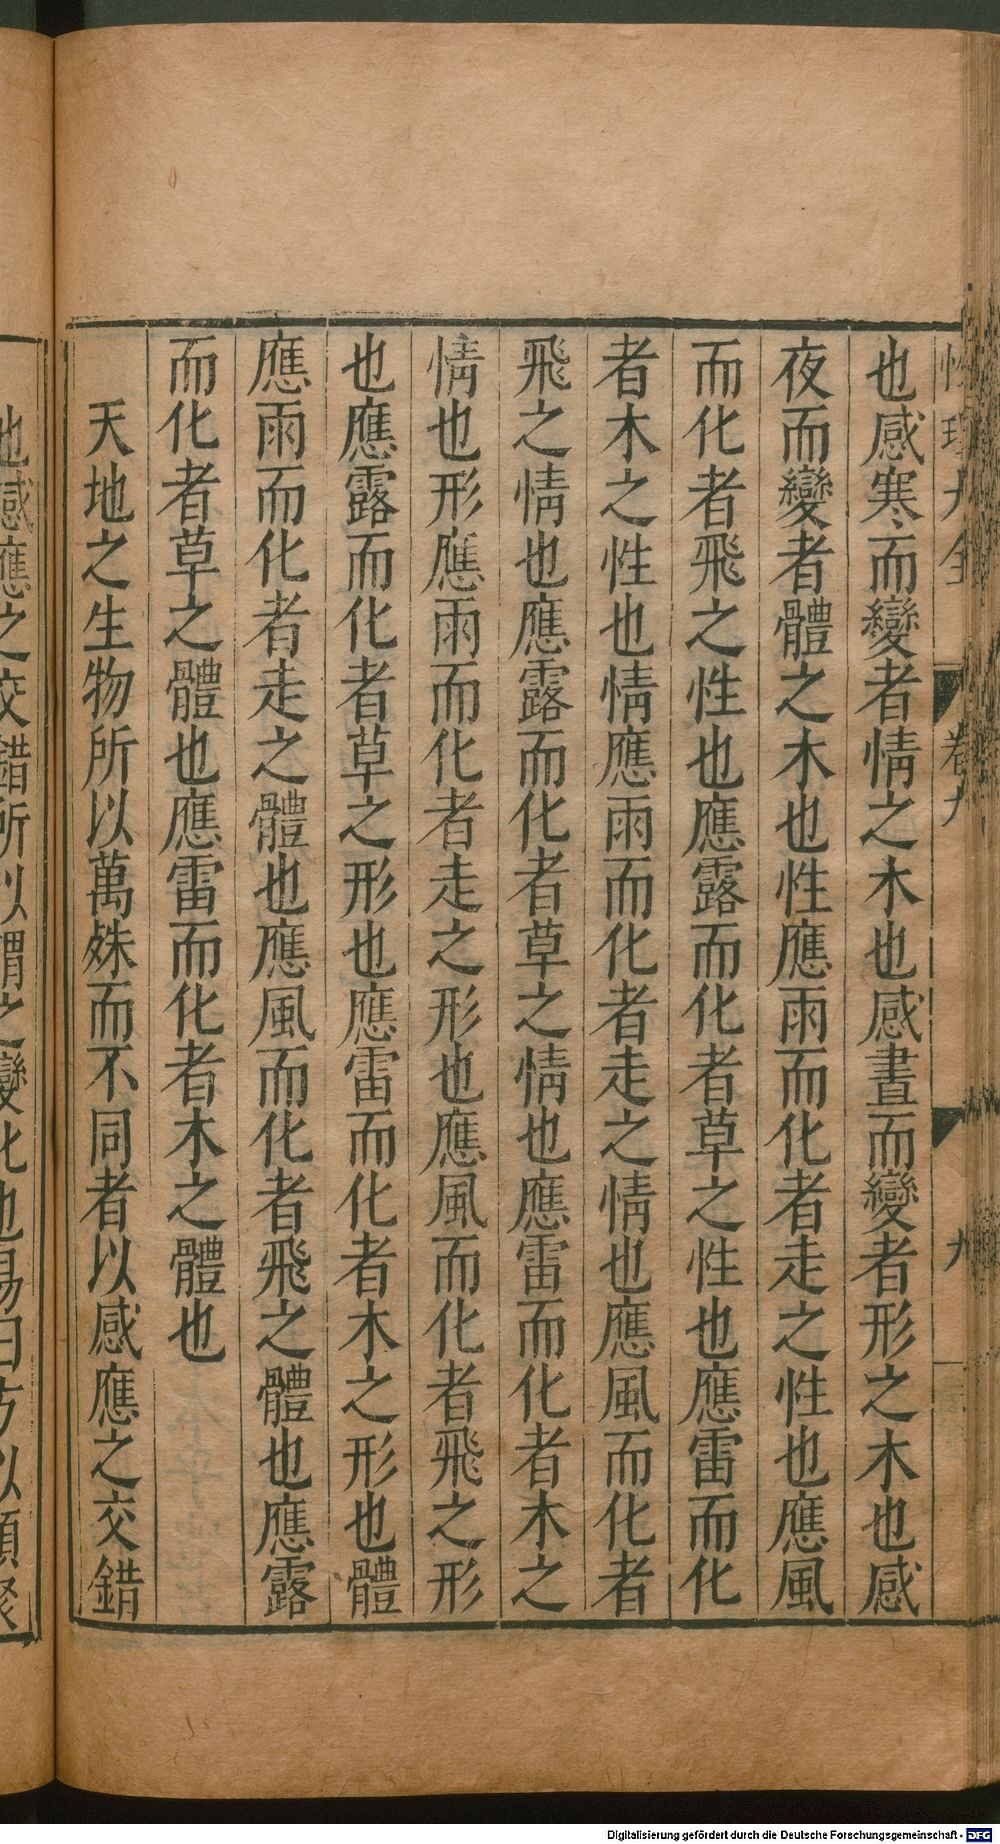 性理大全 卷九 九
也感寒而變者情之木也感晝而變者形之木也感
夜而變者體之木也性應雨而化者走之性也應風
而化者飛之性也應露而化者草之性也應雷而化
者木之性也情應雨而化者走之情也應風而化者
飛之情也應露而化者草之情也應雷而化者木之
情也形應雨而化者走之形也應風而化者飛之形
也應露而化者草之形也應雷而化者木之形也體
應雨而化者走之體也應風而化者飛之體也應露
而化者草之體也應雷而化者木之體也
天地之生物所以萬殊而不同者以感應之交錯
地感應之交錯所以謂之變化也易曰方以類聚
Digitalisierung gefördert durch die Deutsche Forschungsgemeinschaft - DFG